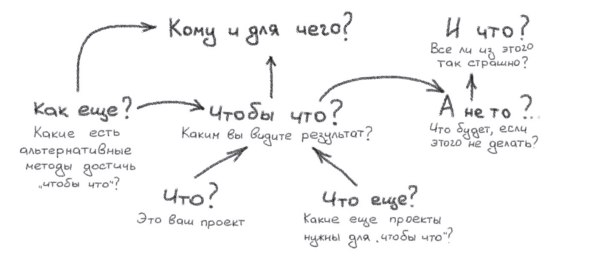 Кому и для чего?
И что?
Все ли из этого
так страшно?
Как еще?
Какие есть
альтернативные
методы достичь
„чтобы что“?
Чтобы что?
Каким вы видите результат?
А не то?
Что будет, если
этого не делать?
Что?
Это ваш проект
Что еще?
Какие еще проекты
нужны для „чтобы что“?